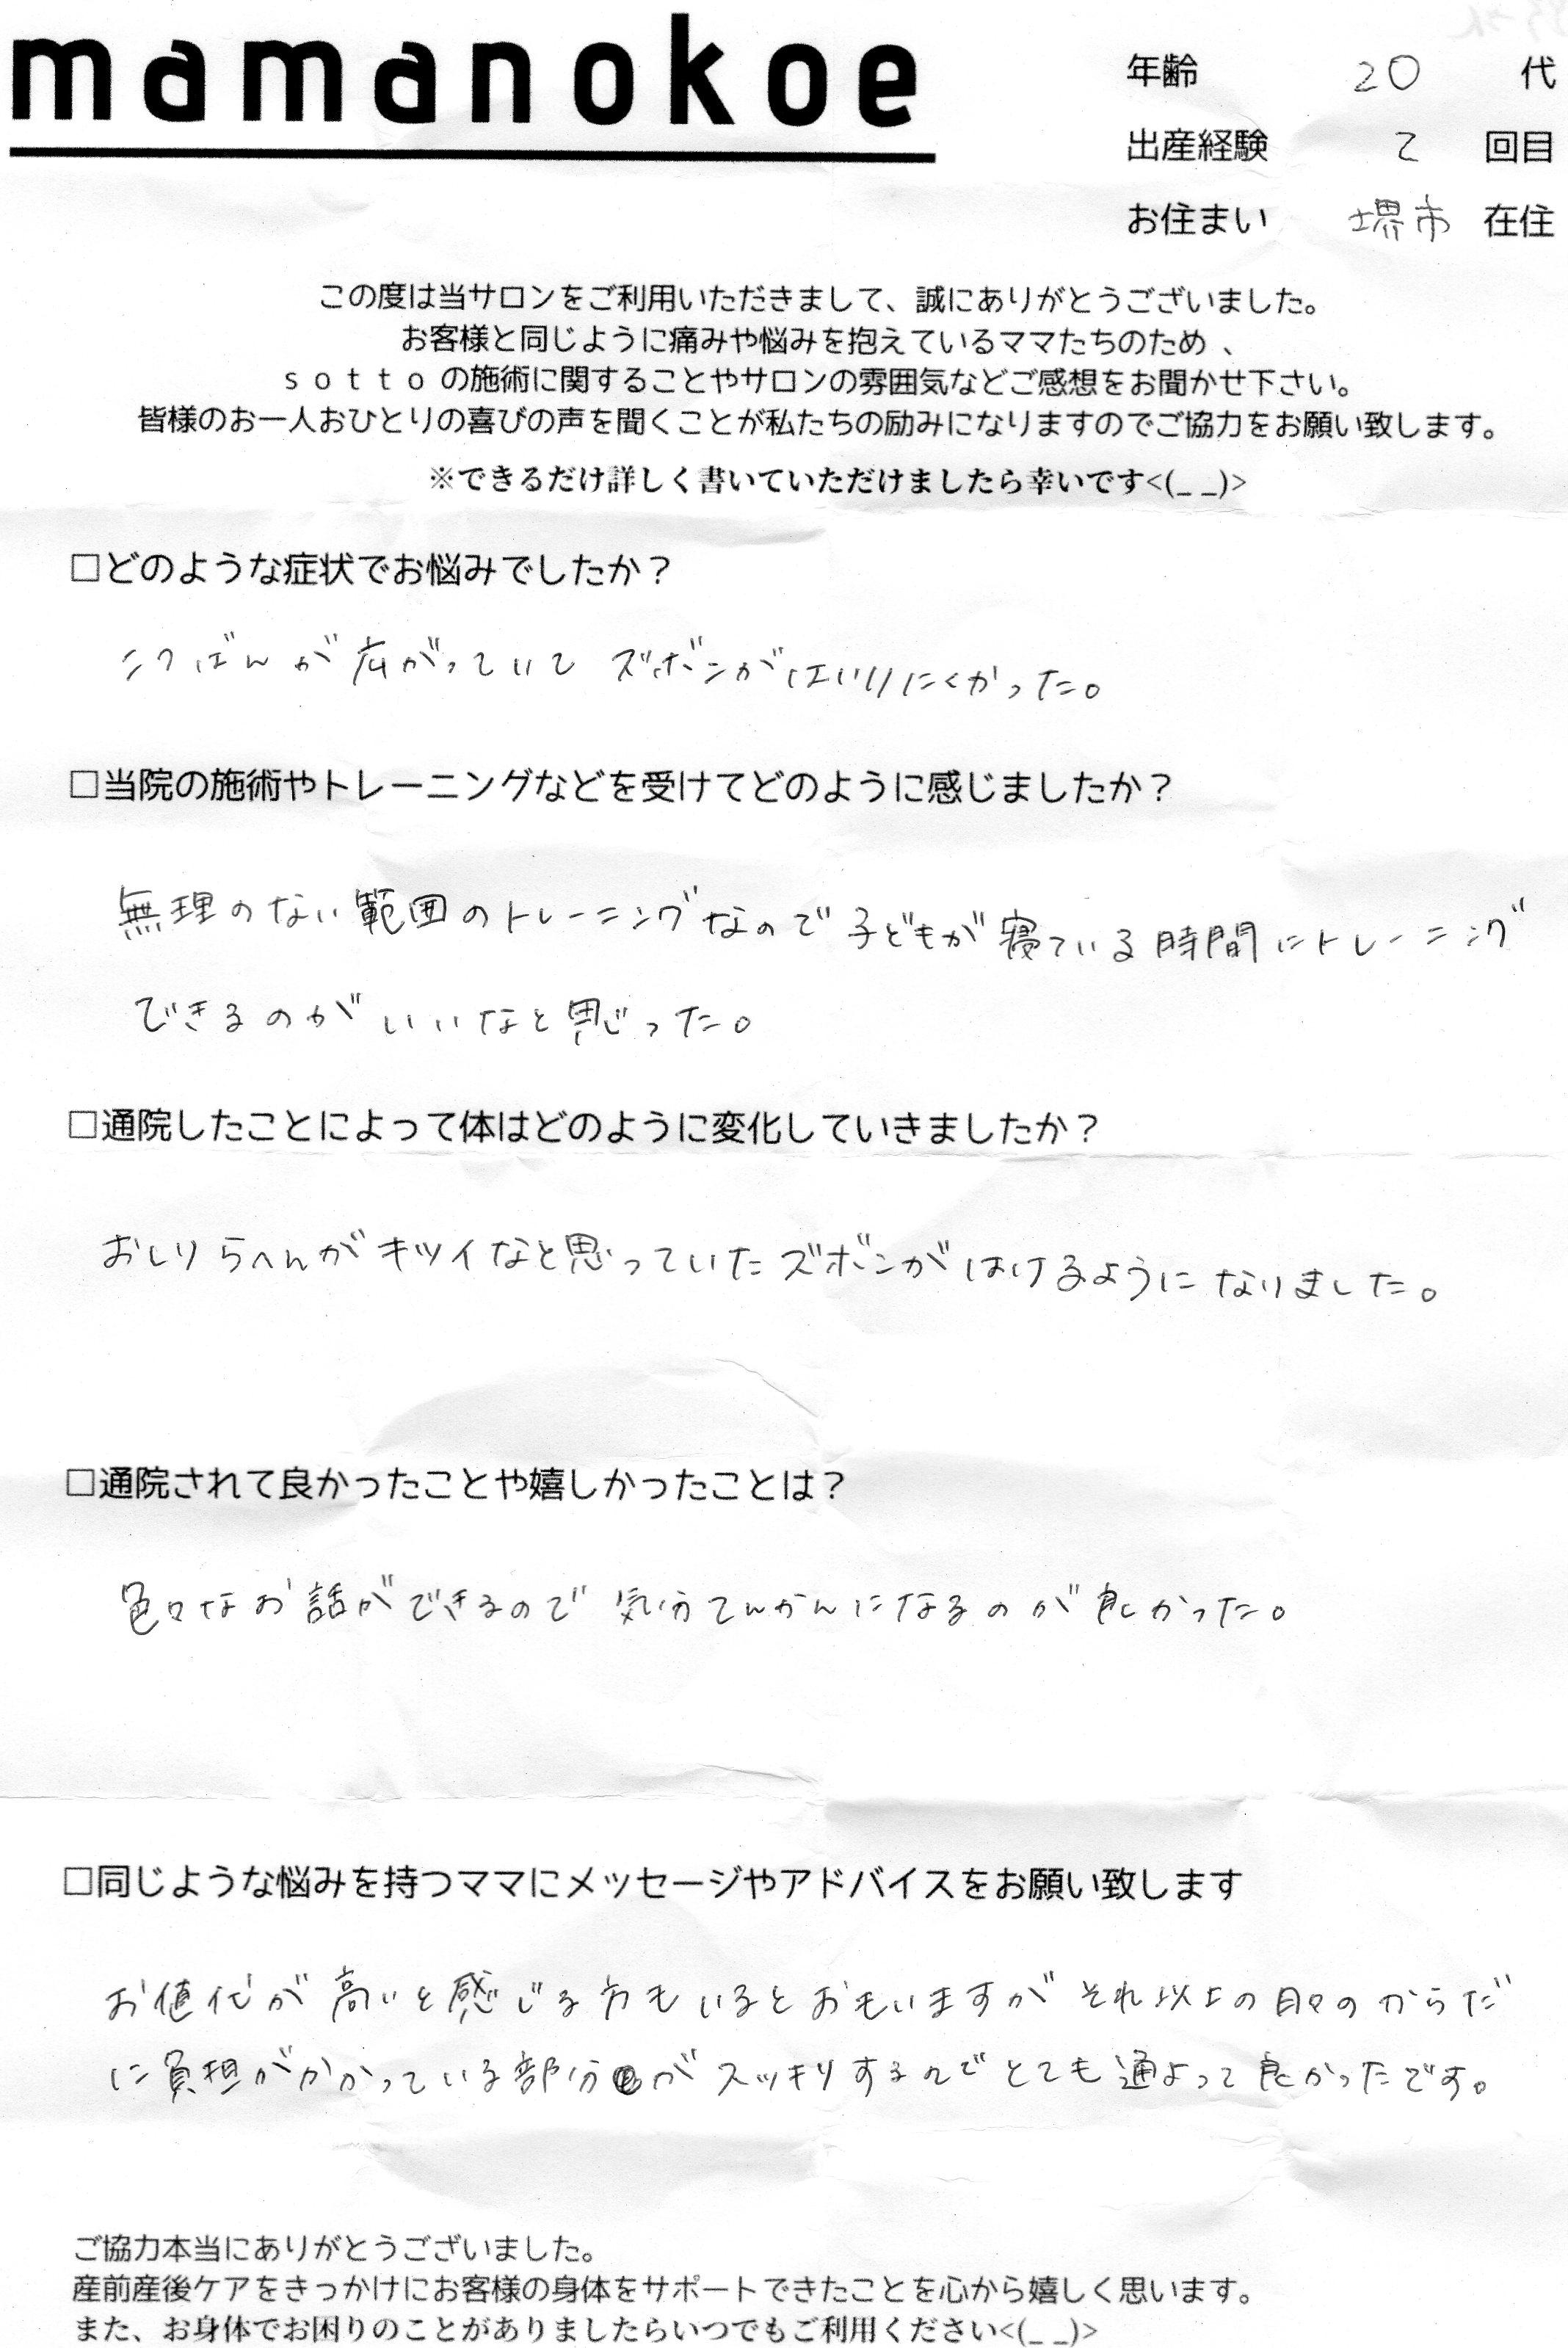 mamanokoe
年齢 20 代
出産経験 2 回目
お住まい 堺市 在住
この度は当サロンをご利用いただきまして、誠にありがとうございました。
お客様と同じように痛みや悩みを抱えているママたちのため、
sottoの施術に関することやサロンの雰囲気などご感想をお聞かせ下さい。
皆様のお一人おひとりの喜びの声を聞くことが私たちの励みになりますのでご協力をお願い致します。
※できるだけ詳しく書いていただけましたら幸いです<(_ _)>
□どのような症状でお悩みでしたか？
こつばんが広がっていて ズボンがはいりにくかった。
□当院の施術やトレーニングなどを受けてどのように感じましたか？
無理のない範囲のトレーニングなので子どもが寝ている時間にトレーニング
できるのがいいなと思った。
□通院したことによって体はどのように変化していきましたか？
おしりらへんがキツイなと思っていたズボンがはけるようになりました。
□通院されて良かったことや嬉しかったことは？
色々なお話ができるので気分てんかんになるのが良かった。
□同じような悩みを持つママにメッセージやアドバイスをお願い致します
お値代が高いと感じる方もいるとおもいますがそれ以上の日々のからだ
に負担がかかっている部分がスッキリするのでとても通よって良かったです。
ご協力本当にありがとうございました。
産前産後ケアをきっかけにお客様の身体をサポートできたことを心から嬉しく思います。
また、お身体でお困りのことがありましたらいつでもご利用ください<(_ _)>